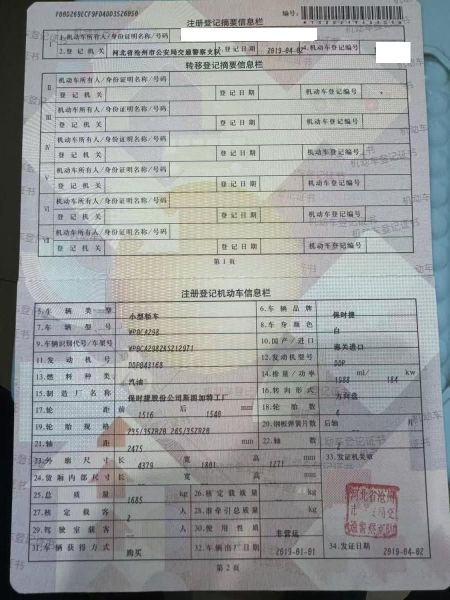 F000269ECF9FD4DD3526050
注册登记摘要信息栏
编号：
I 1.机动车所有人/身份证明名称/号码
2.登记机关 河北省沧州市公安局交通警察支队 3.登记日期 2019-04-02 4.机动车登记编号
转移登记摘要信息栏
II 机动车所有人/身份证明名称/号码
登记机关 登记日期 机动车登记编号
III 机动车所有人/身份证明名称/号码
登记机关 登记日期 机动车登记编号
IV 机动车所有人/身份证明名称/号码
登记机关 登记日期 机动车登记编号
V 机动车所有人/身份证明名称/号码
登记机关 登记日期 机动车登记编号
VI 机动车所有人/身份证明名称/号码
登记机关 登记日期 机动车登记编号
VII 机动车所有人/身份证明名称/号码
登记机关 登记日期 机动车登记编号
第1页
注册登记机动车信息栏
5.车辆类型 小型轿车 6.车辆品牌 保时捷
7.车辆型号 WP0CA298 8.车身颜色 白
9.车辆识别代号/车架号 10.国产/进口 海关进口
11.发动机号 DDP043168 12.发动机型号 DDP
13.燃料种类 汽油 14.排量/功率 1988 ml/ 184 kw
15.制造厂名称 保时捷股份公司斯图加特工厂 16.转向形式 方向盘
17.轮距 前 1516 后 1540 mm 18.轮胎数 4
19.轮胎规格 235/35ZR20 265/35ZR20 20.钢板弹簧片数 后轴
21.轴距 2475 22.轴数
23.外廓尺寸 长 4379 宽 1801 高 1271 mm 33.发证机关章
24.货厢内部尺寸 长 宽 高
25.总质量 1685 kg 26.核定载质量 kg
27.核定载客 2 人 28.准牵引总质量 kg
29.驾驶室载客 人 30.使用性质 非营运
31.车辆获得方式 购买 32.车辆出厂日期 2019-01-01 34.发证日期 2019-04-02
第2页